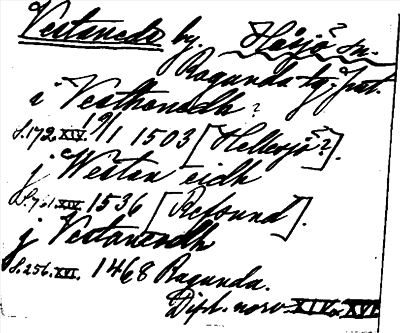 Vestanede by. Håsjö? sn.
Ragunda tg. Jmt.
i Vesthanedh?
S. 172 XIV. 19/1 1503 [Hellesjö?].
j Westan eidh
S. 761. XIV. 1536 [Refsund].
j Vestanedh
S. 256. XVI. 1468 Ragunda.
Dipl. norv. XIV o. XVI